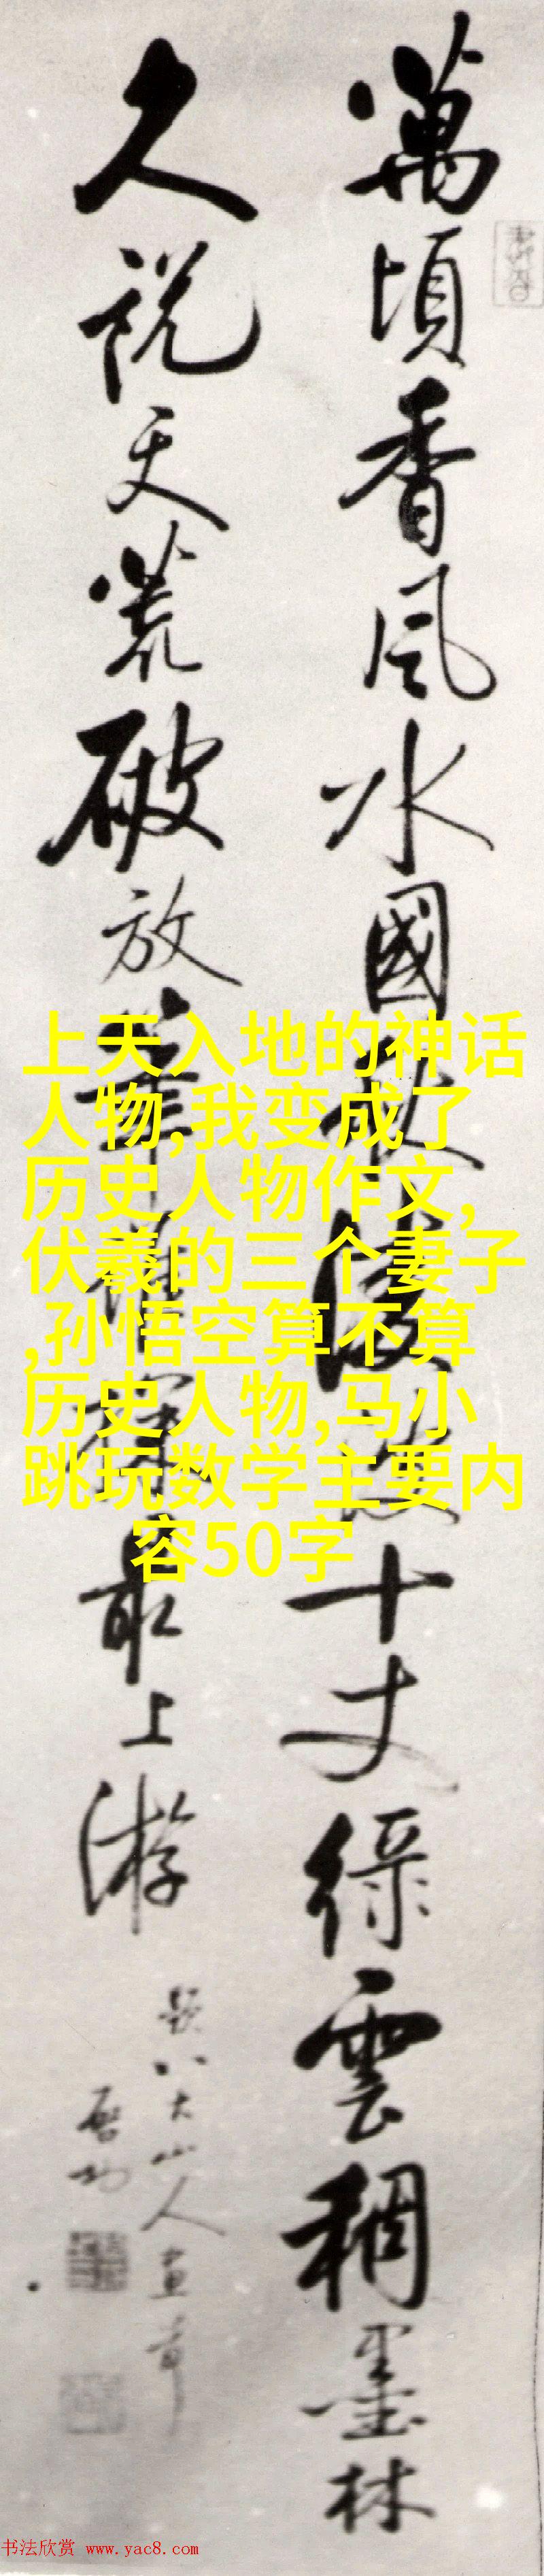 萬頃香風水國秋淩波十丈綠雲稠墨林
久説天荒破放筆難探最上游
題八大山人畫荷
啓功
上天入地的神话
人物,我变成了
历史人物作文,
伏羲的三个妻子
,孙悟空算不算
历史人物,马小
跳玩数学主要内
容50字
书法欣赏 www.yac8.com